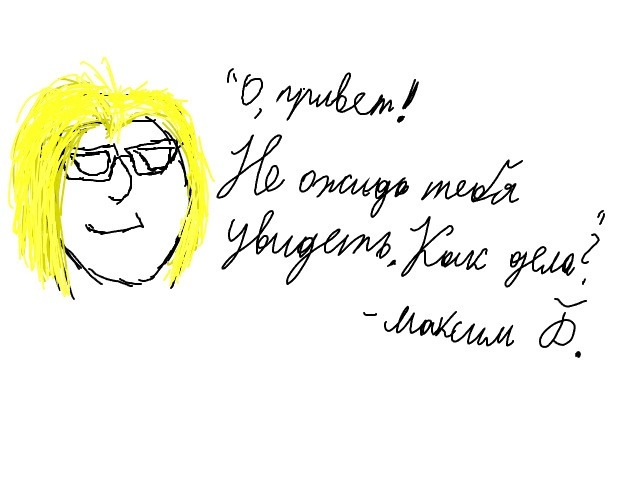 "О, привет!
Не ожидь тебя
увидеть. Как дела?"
- Максим Б.